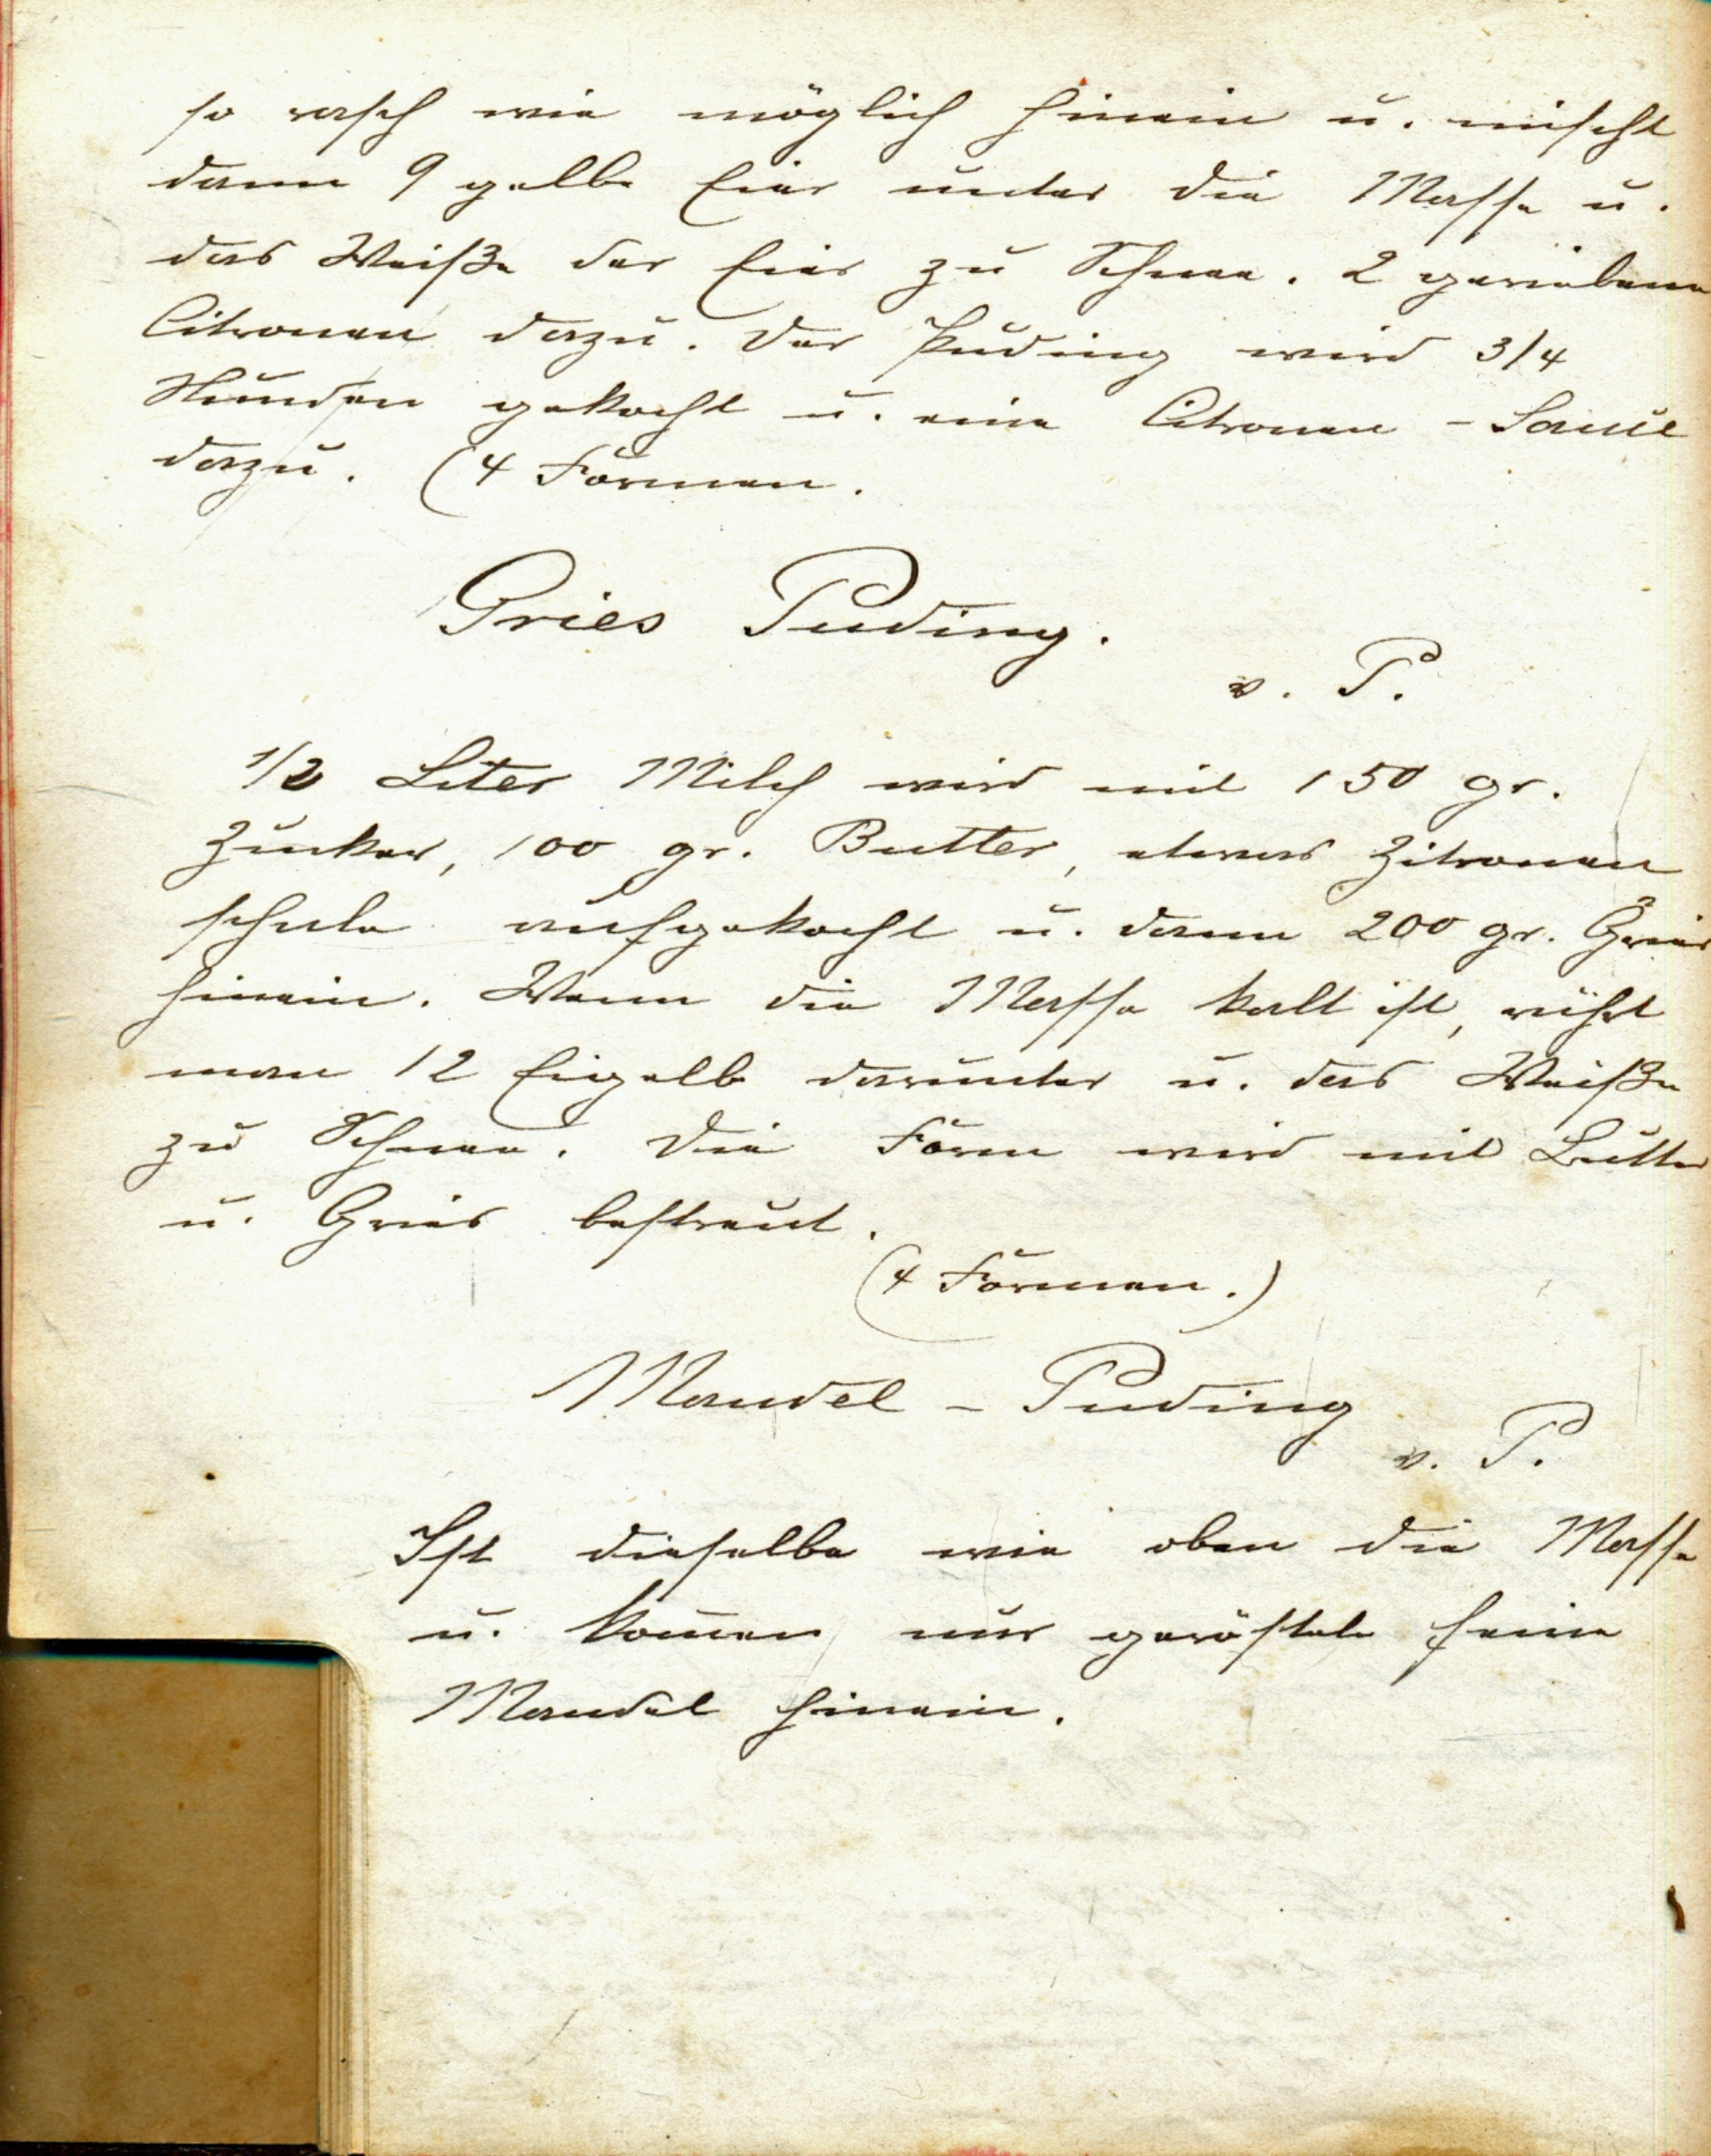 so rasch wie möglich hinein u. mischt
dann 9 gelbe Eier unter die Masse u.
das Weiße der Eier zu Schnee. 2 geriebene
Citronen dazu. Der Puding wird 3/4
Stunden gekocht u. eine Citronen - Sauce
dazu. (4 Formen.
Gries Puding.
v. P.
1/2 Liter Milch wird mit 150 gr.
Zucker, 100 gr. Butter, etwas Zitronen
schale aufgekocht u. dann 200 gr. Gries
hinein. Wenn die Masse kalt ist, rührt
man 12 Eigelb darunter u. das Weiße
zu Schnee. Die Form wird mit Butter
u. Gries bestreut.
(4 Formen.)
Mandel - Puding
v. P.
Ist dieselbe wie oben die Masse
u. kom̅en nur geröstete feine
Mandel hinein.